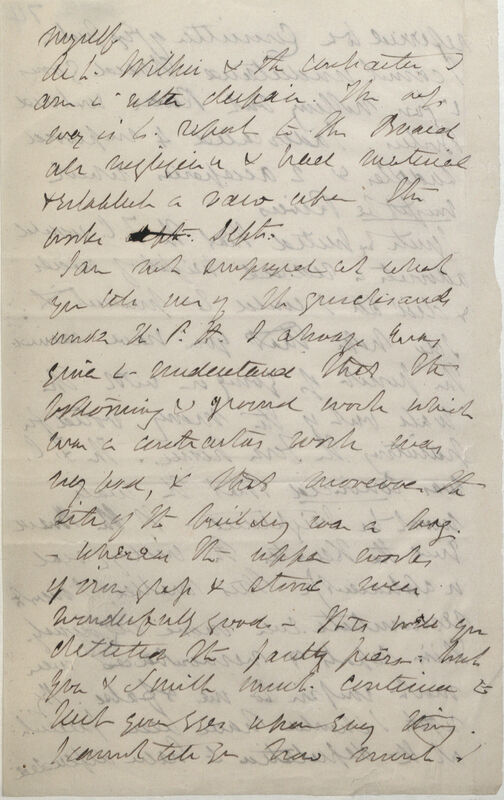 myself
as to Wilkin & the contractor I
am in utter despair. The only
way is to report to the Board
all negligence & bad material
& establish a row upon the
works Dept.
I am not surprised at what
you tell me of the
under the P. H. I always was
given to understand that the
bottoming & ground work which
was a contractors work was
very bad, & that moreover the
site of the building was a bog.
- whereas the upper works
of iron glass & stone were
wonderfully good - This was you
detected the faulty piers but
you & Smith must continue to
keep your eyes upon every thing.
I cannot tell you how much I